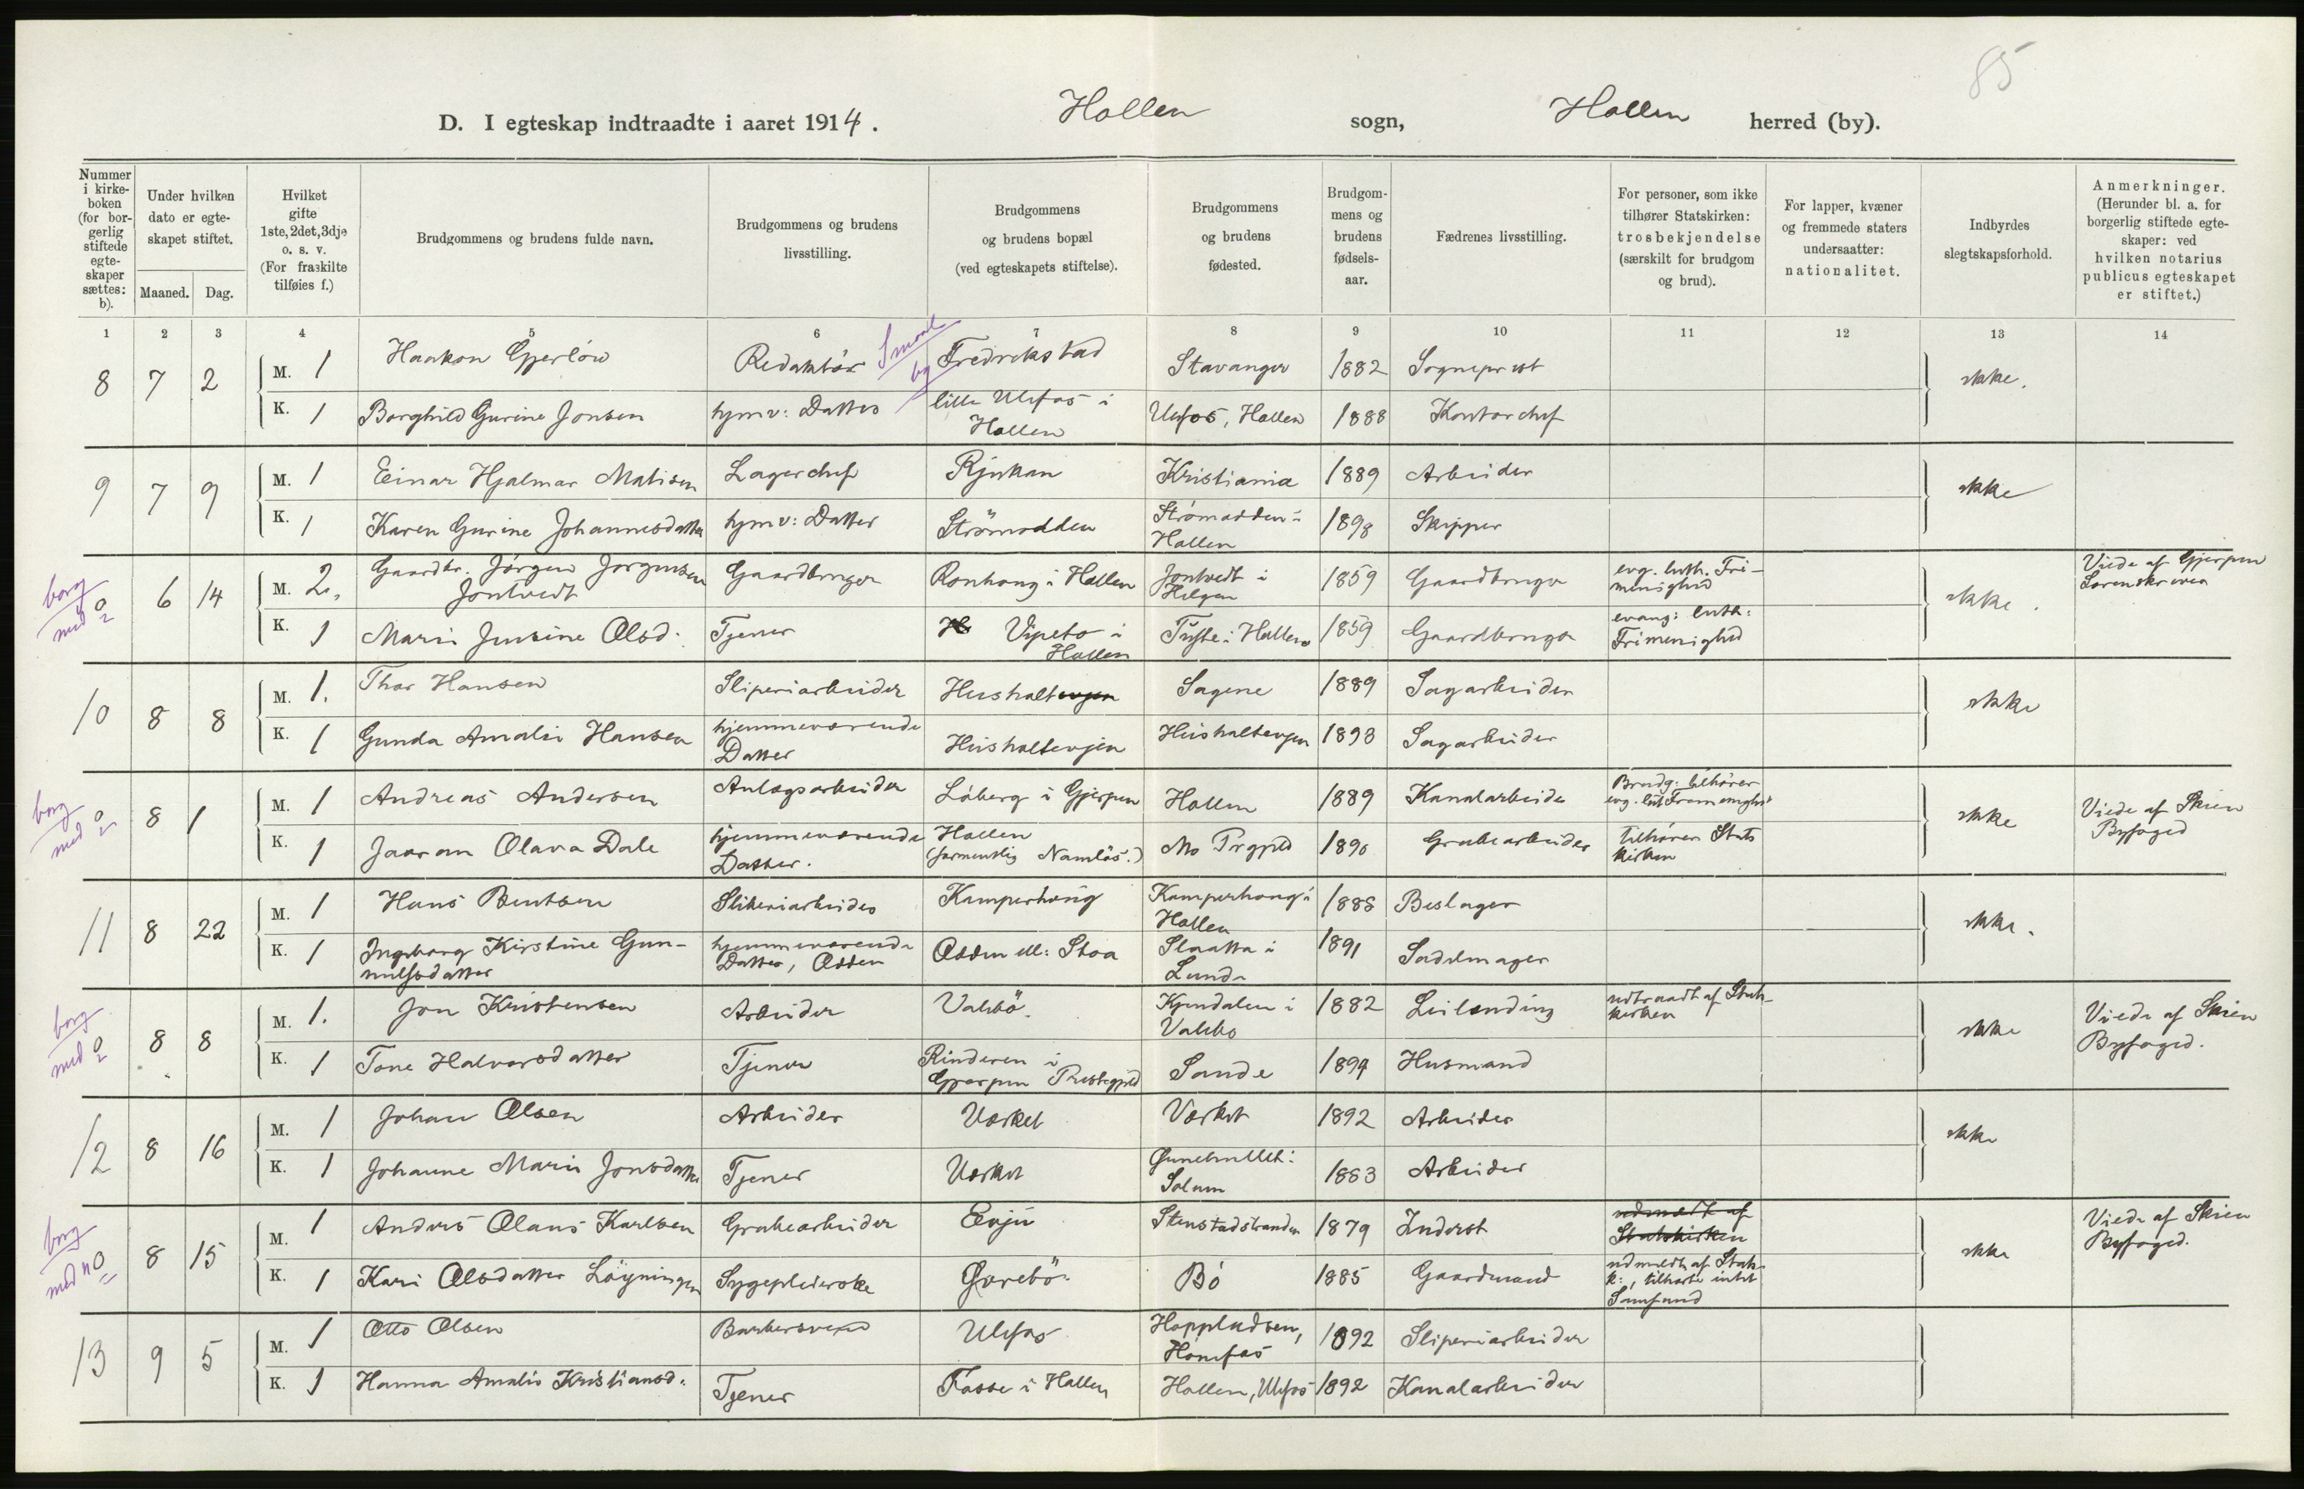 85
D. I egteskap indtraadte i aaret 1914. Hollen sogn, Hollen herred (by).
Nummer i kirkeboken (for borgerlig stiftede egteskaper sættes: b).
Under hvilken dato er egteskapet stiftet.
Maaned. Dag.
Hvilket gifte 1ste, 2det, 3dje o. s. v. (For fraskilte tilføies f.)
Brudgommens og brudens fulde navn.
Brudgommens og brudens livsstilling.
Brudgommens og brudens bopæl (ved egteskapets stiftelse).
Brudgommens og brudens fødested.
Brudgommens og brudens fødselsaar.
Fædrenes livsstilling.
For personer, som ikke tilhører Statskirken: trosbekjendelse (særskilt for brudgom og brud).
For lapper, kvæner og fremmede staters undersaatter: nationalitet.
Indbyrdes slegtskapsforhold.
Anmerkninger. (Herunder bl. a. for borgerlig stiftede egteskaper: ved hvilken notarius publicus egteskapet er stiftet.)
1 2 3 4 5 6 7 8 9 10 11 12 13 14
8 7 2 M. 1 Haakon Gjerløw Redaktør Fredrikstad Stavanger 1882 Sogneprest ikke.
K. 1 Borghild Gurine Jonsen hjmv: Datter lille Ulefos i Hollen Ulefos, Hollen 1888 Kontorchef
9 7 9 M. 1 Einar Hjalmar Matisen Lagerchef Rjukan Kristiania 1889 Arbeider ikke
K. 1 Karen Gurine Johannesdatter hjmv: Datter Strömodden Strømodden i Hollen 1898 Skipper
borg
med 6 14 M. 2. Gaardbr. Jørgen Jørgensen Jontvedt Gaardbruger Ronhaug i Hollen Jontvedt i Helgen 1859 Gaardbruger evg. luth. Frimenighed ikke. Viede af Gjerpen Sorenskriver
K. 1 Mari Jensine Olsd. Tjener Vipeto i Hollen Tufte i Hollen 1859 Gaardbruger evang: luth: Frimenighed
10 8 8 M. 1. Thor Hansen Sliperiarbeider Husholtevjen Sagene 1889 Sagarbeider ikke
K. 1 Gunda Amalie Hansen hjemmeværende Datter Husholtevjen Husholtevjen 1893 Sagarbeider
borg
med 8 1 M. 1 Andreas Andersen Anlægsarbeider Låberg i Gjerpen Hollen 1889 Kanalarbeider Brudg: tilhører evg. lut. Frimenighet ikke Viede af Skien Byfoged
K. 1 Olava Dale hjemmeværende Datter. Hollen (formentlig Namløs.) Mo Prgjeld 1890 Grubearbeider tilhører Stats kirken
11 8 22 M. 1 Hans Bentsen Sliperiarbeider Kamperhaug Kamperhaug i Hollen 1888 Beslager ikke.
K. 1 Ingeborg Kirstine Gunnulfsdatter hjemmeværende Datter, Odden Odden ell: Stoa Slaatta i Lunde 1891 Sadelmager
borg
med 8 8 M. 1. Jon Kristensen Arbeider Valebö. Kjendalen i Valebø 1882 Leilending udtraadt af Statskirken ikke Viede af Skien Byfoged.
K. 1 Tone Halvorsdatter Tjener Rinderen i Gjerpen Prestegjeld Sande 1894 Husmand
12 8 16 M. 1 Johan Olsen Arbeider Værket Værket 1892 Arbeider ikke
K. 1 Johanne Marie Jonsdatter Tjener Værket Solum 1883 Arbeider
borg
med 8 15 M. 1 Anders Olaus Karlsen Grubearbeider Evju Stenstadstranden 1879 Inderst udmeldt af Statskirken ikke Viede af Skien Byfoged.
K. 1 Kari Olsdatter Löyningen Sygepleierske Gørebö Bö 1885 Gaardmand udmeldt af Stats k:, tilhørte intet Samfund
13 9 5 M. 1 Otto Olsen Barbersvend Ulefos Hoppladsen, Hønefos 1892 Sliperiarbeider
K. 1 Hanna Amalie Kristiansd. Tjener Fosse i Hollen Hollen, Ulefos 1892 Kanalarbeider